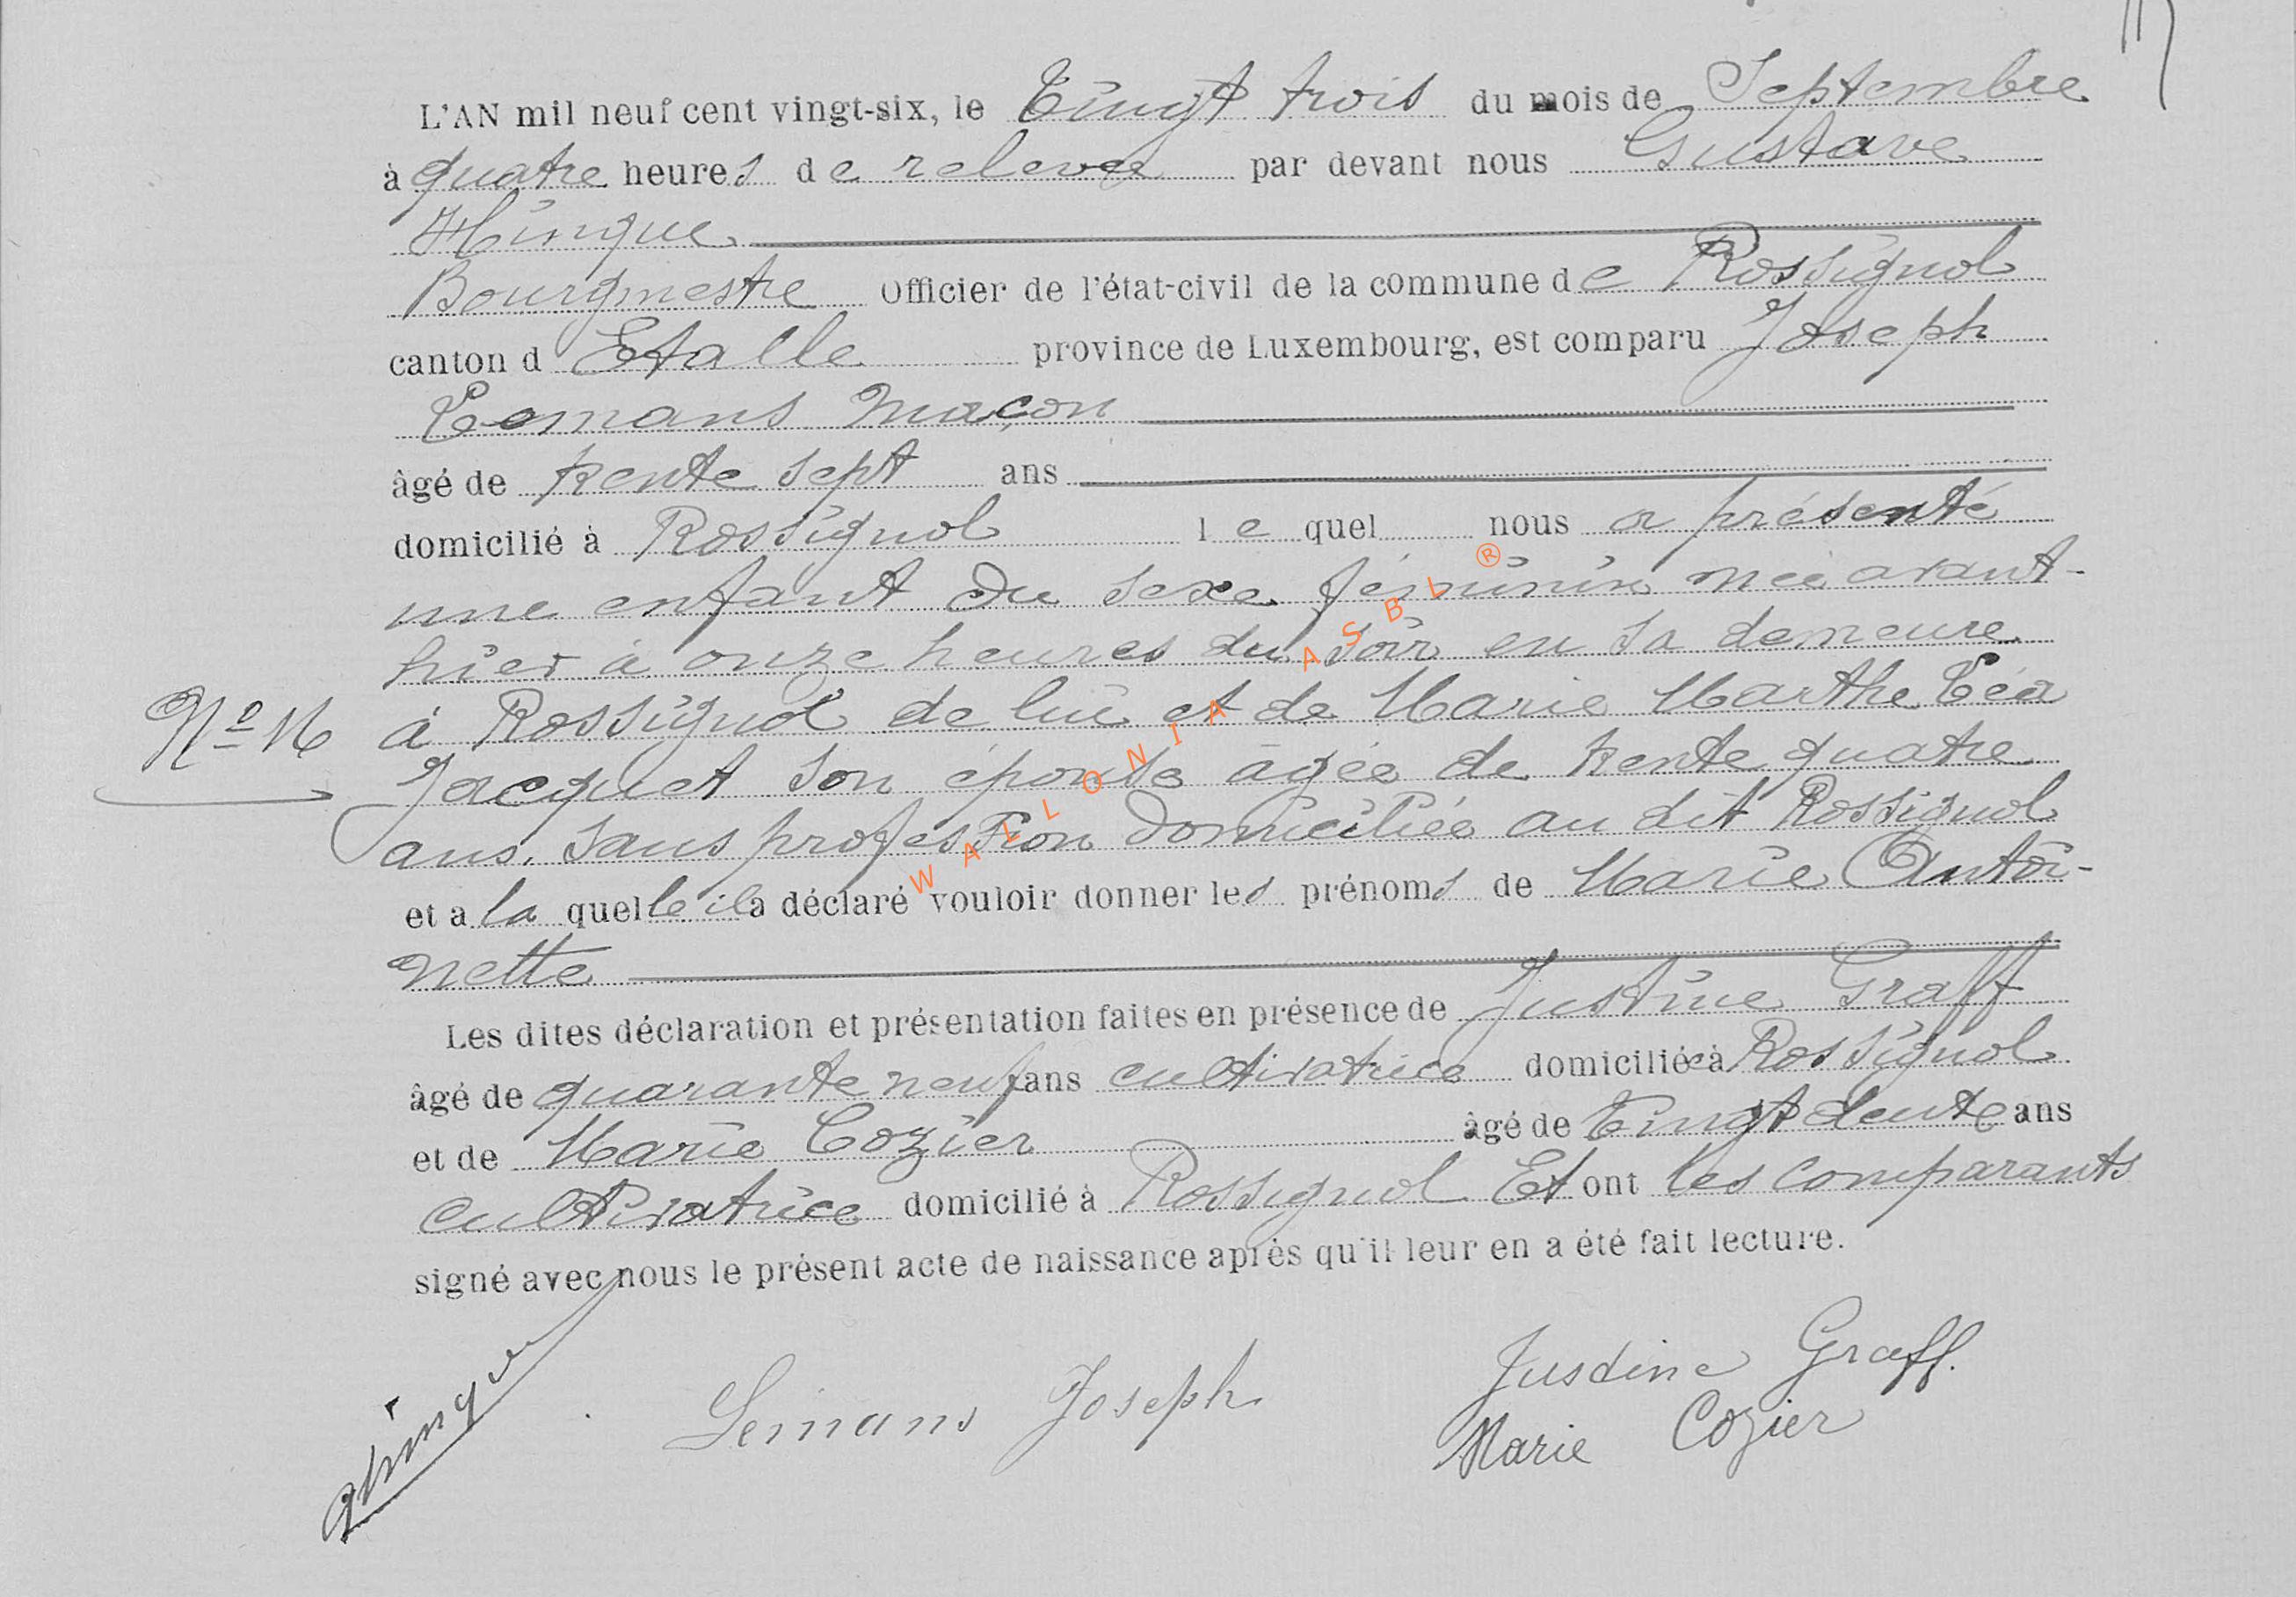 L'AN mil neuf cent vingt-six, le Vingt trois du mois de Septembre
à quatre heures de relevée par devant nous Gustave
Hinque
Bourgmestre Officier de l'état-civil de la commune de Rossignol
canton d Etalle province de Luxembourg, est comparu Joseph
Lemans maçon
âgé de trente sept ans
domicilié à Rossignol lequel nous a présenté
une enfant du sexe féminin née avant-
hier à onze heures du soir en sa demeure
No 16 à Rossignol de lui et de Marie Marthe Léa
Jacquet son épouse âgée de trente quatre
ans. sans profession domiciliée au dit Rossignol
et a la quelle il a déclaré vouloir donner les prénoms de Marie Antoi-
nette
Les dites déclaration et présentation faites en présence de Justine Graff
âgé de quarante neuf ans cultivatrice domiciliée à Rossignol
et de Marie Cozier âgé de Vingt deux ans
cultivatrice domicilié à Rossignol Et ont les comparants
signé avec nous le présent acte de naissance après qu'il leur en a été fait lecture.
GHinque Lemans Joseph Justine Graff.
Marie Cozier
WALLONIA ASBL ®